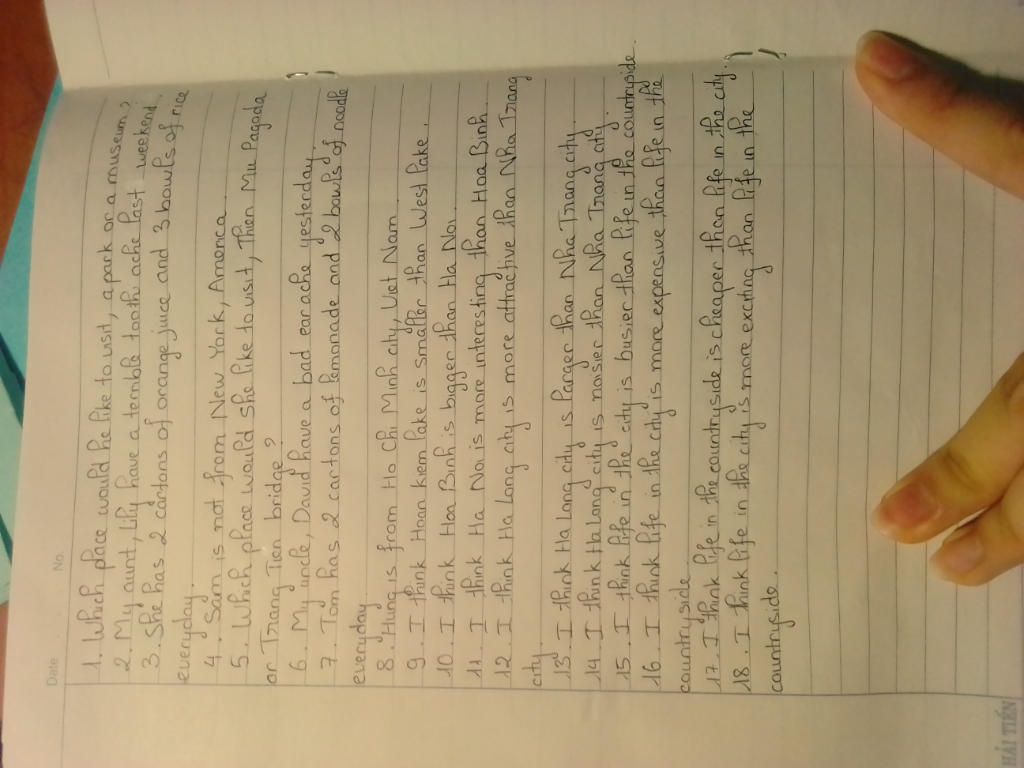 Date No.
1. Which place would he like to visit, a park or a museum?
2. My aunt, Lily have a terrible tooth ache last weekend.
3. She has 2 cartons of orange juice and 3 bowls of rice
everyday.
4. Sam is not from New York, America.
5. Which place would she like to visit, Thien Mu Pagoda
or Trang Tien bridge?
6. My uncle, David have a bad earache yesterday.
7. Tom has 2 cartons of lemonade and 2 bowls of noodle
everyday
8. Hung is from Ho Chi Minh city, Viet Nam.
9. I think Hoan kiem lake is smaller than West lake.
10. I think Hoa Binh is bigger than Ha Noi.
11. I think Ha Noi is more interesting than Hoa Binh.
12. I think Ha Long city is more attractive than Nha Trang
city.
13. I think Ha Long city is larger than Nha Trang city.
14. I think Ha Long city is noisier than Nha Trang city.
15. I think life in the city is busier than life in the countryside.
16. I think life in the city is more expensive than life in the
countryside.
17. I think life in the countryside is cheaper than life in the city.
18. I think life in the city is more exciting than life in the
countryside.
HẢI TIẾN